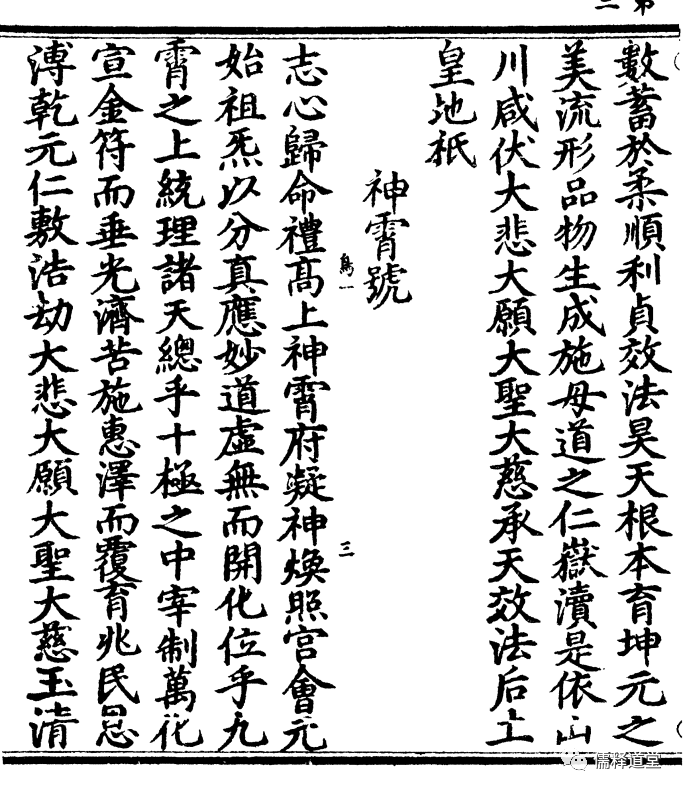 數蓄於柔順利貞效法昊天根本育坤元之
美流形品物生成施母道之仁嶽瀆是依山
川咸伏大悲大願大聖大慈承天效法后土
皇地祇
神霄號
鳥一
三
志心歸命禮高上神霄府凝神煥照宮會元
始祖炁以分真應妙道虛無而開化位乎九
霄之上統理諸天總乎十極之中宰制萬化
宣金符而垂光濟苦施惠澤而覆育兆民恩
溥乾元仁敷浩劫大悲大願大聖大慈玉清
儒释道堂